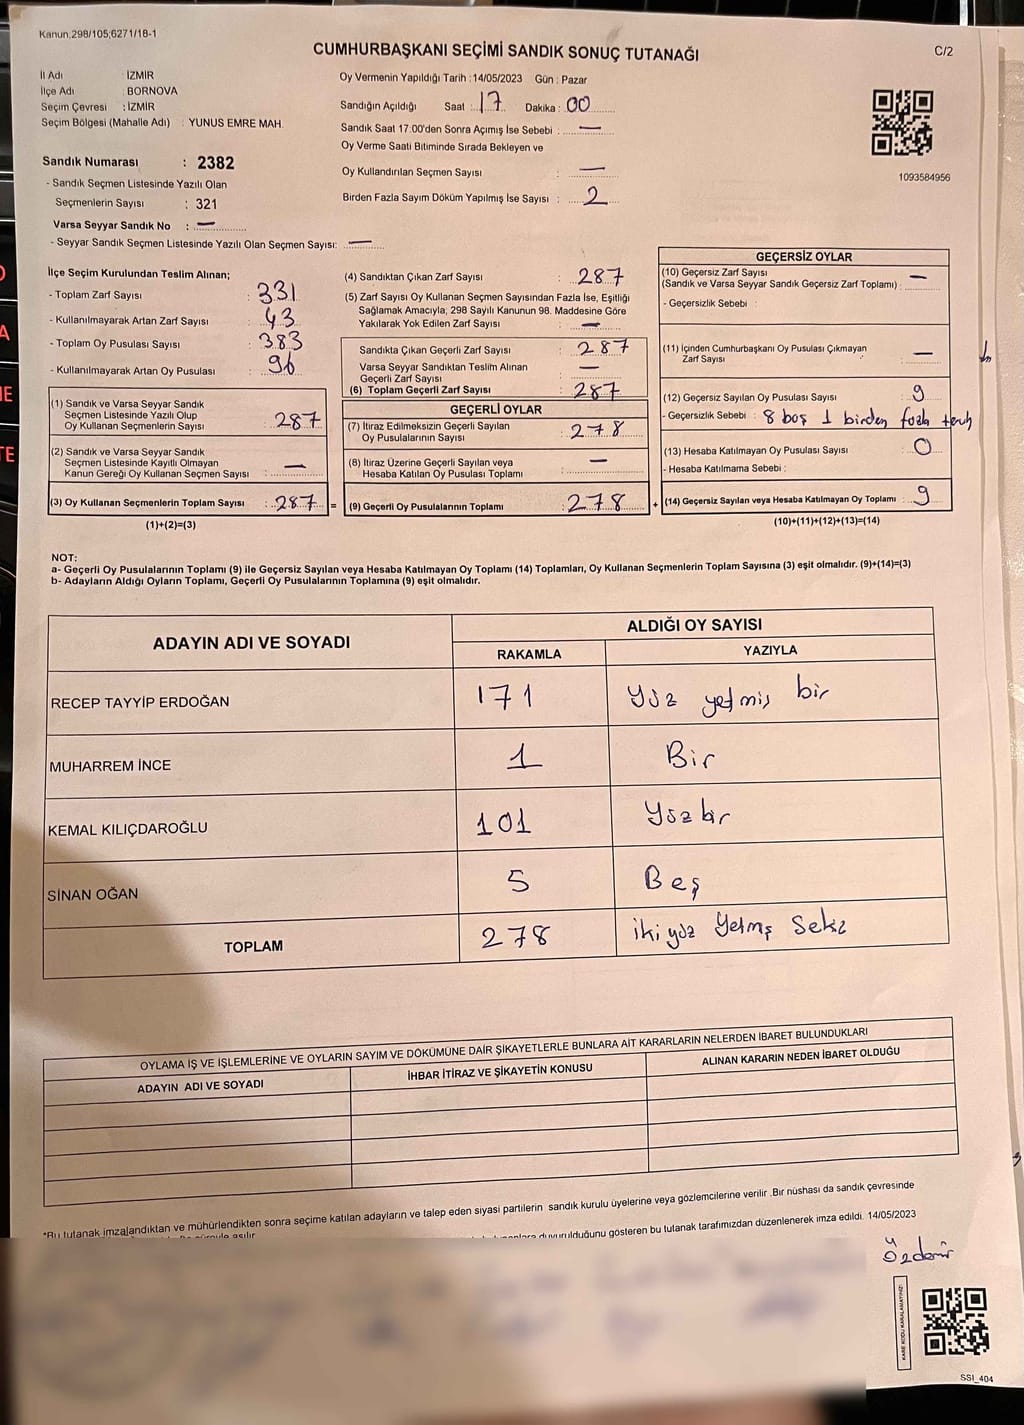 Kanun,298/105;6271/18-1
CUMHURBAŞKANI SEÇİMİ SANDIK SONUÇ TUTANAĞI
C/2
İl Adı : İZMİR
İlçe Adı : BORNOVA
Seçim Çevresi : İZMİR
Seçim Bölgesi (Mahalle Adı) : YUNUS EMRE MAH.
Sandık Numarası : 2382
- Sandık Seçmen Listesinde Yazılı Olan
Seçmenlerin Sayısı : 321
Varsa Seyyar Sandık No : —
- Seyyar Sandık Seçmen Listesinde Yazılı Olan Seçmen Sayısı: —
Oy Vermenin Yapıldığı Tarih :14/05/2023 Gün : Pazar
Sandığın Açıldığı Saat : 17 Dakika : 00
Sandık Saat 17:00'den Sonra Açımış İse Sebebi : —
Oy Verme Saati Bitiminde Sırada Bekleyen ve
Oy Kullandırılan Seçmen Sayısı : —
Birden Fazla Sayım Döküm Yapılmış İse Sayısı : 2
1093584956
İlçe Seçim Kurulundan Teslim Alınan;
- Toplam Zarf Sayısı : 331
- Kullanılmayarak Artan Zarf Sayısı : 43
- Toplam Oy Pusulası Sayısı : 383
- Kullanılmayarak Artan Oy Pusulası : 96
(1) Sandık ve Varsa Seyyar Sandık
Seçmen Listesinde Yazılı Olup
Oy Kullanan Seçmenlerin Sayısı : 287
(2) Sandık ve Varsa Seyyar Sandık
Seçmen Listesinde Kayıtlı Olmayan
Kanun Gereği Oy Kullanan Seçmen Sayısı : —
(3) Oy Kullanan Seçmenlerin Toplam Sayısı : 287 =
(1)+(2)=(3)
(4) Sandıktan Çıkan Zarf Sayısı : 287
(5) Zarf Sayısı Oy Kullanan Seçmen Sayısından Fazla İse, Eşitliği
Sağlamak Amacıyla; 298 Sayılı Kanunun 98. Maddesine Göre
Yakılarak Yok Edilen Zarf Sayısı : —
Sandıkta Çıkan Geçerli Zarf Sayısı : 287
Varsa Seyyar Sandıktan Teslim Alınan
Geçerli Zarf Sayısı : —
(6) Toplam Geçerli Zarf Sayısı : 287
GEÇERLİ OYLAR
(7) İtiraz Edilmeksizin Geçerli Sayılan
Oy Pusulalarının Sayısı : 278
(8) İtiraz Üzerine Geçerli Sayılan veya
Hesaba Katılan Oy Pusulası Toplamı : —
(9) Geçerli Oy Pusulalarının Toplamı : 278 +
GEÇERSİZ OYLAR
(10) Geçersiz Zarf Sayısı
(Sandık ve Varsa Seyyar Sandık Geçersiz Zarf Toplamı) : —
- Geçersizlik Sebebi :
(11) İçinden Cumhurbaşkanı Oy Pusulası Çıkmayan
Zarf Sayısı : —
(12) Geçersiz Sayılan Oy Pusulası Sayısı : 9
- Geçersizlik Sebebi : 8 boş 1 birden fazla tercih
(13) Hesaba Katılmayan Oy Pusulası Sayısı : 0
- Hesaba Katılmama Sebebi :
(14) Geçersiz Sayılan veya Hesaba Katılmayan Oy Toplamı : 9
(10)+(11)+(12)+(13)=(14)
NOT:
a- Geçerli Oy Pusulalarının Toplamı (9) ile Geçersiz Sayılan veya Hesaba Katılmayan Oy Toplamı (14) Toplamları, Oy Kullanan Seçmenlerin Toplam Sayısına (3) eşit olmalıdır. (9)+(14)=(3)
b- Adayların Aldığı Oyların Toplamı, Geçerli Oy Pusulalarının Toplamına (9) eşit olmalıdır.
ADAYIN ADI VE SOYADI
ALDIĞI OY SAYISI
RAKAMLA YAZIYLA
RECEP TAYYİP ERDOĞAN 171 Yüz yetmiş bir
MUHARREM İNCE 1 Bir
KEMAL KILIÇDAROĞLU 101 Yüzbir
SİNAN OĞAN 5 Beş
TOPLAM 278 iki yüz Yetmş Sekiz
OYLAMA İŞ VE İŞLEMLERİNE VE OYLARIN SAYIM VE DÖKÜMÜNE DAİR ŞİKAYETLERLE BUNLARA AİT KARARLARIN NELERDEN İBARET BULUNDUKLARI
ADAYIN ADI VE SOYADI İHBAR İTİRAZ VE ŞİKAYETİN KONUSU ALINAN KARARIN NEDEN İBARET OLDUĞU
*Bu tutanak imzalandıktan ve mühürlendikten sonra seçime katılan adayların ve talep eden siyasi partilerin sandık kurulu üyelerine veya gözlemcilerine verilir .Bir nüshası da sandık çevresinde
asılır
duyurulduğunu gösteren bu tutanak tarafımızdan düzenlenerek imza edildi. 14/05/2023
Özdemir
KARE KODU KARALAMAYINIZ!
SSI_404